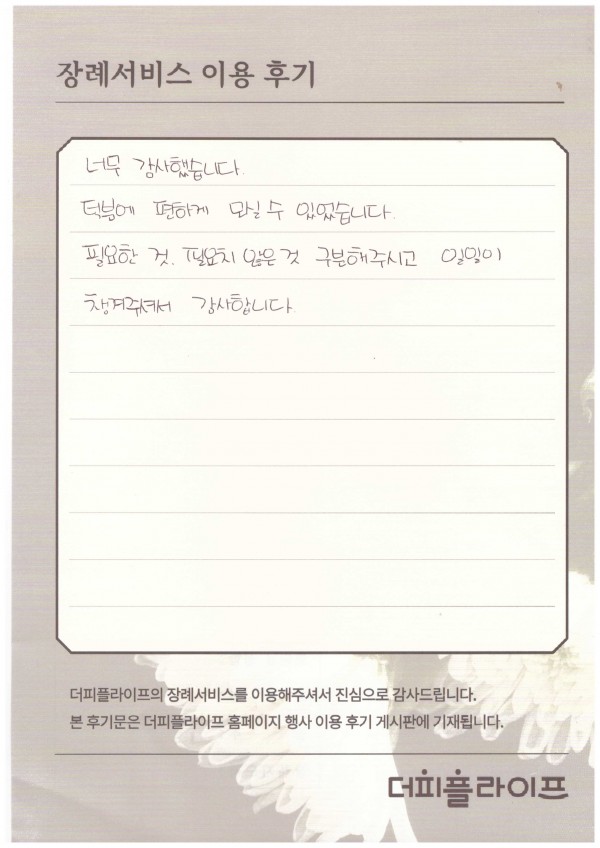 장례서비스 이용 후기
너무 감사했습니다.
덕분에 편하게 모실 수 있었습니다.
필요한 것. 필요치 않은것 구분해주시고 일일이
챙겨주셔서 감사합니다.
더피플라이프의 장례서비스를 이용해주셔서 진심으로 감사드립니다.
본 후기문은 더피플라이프 홈페이지 행사 이용 후기 게시판에 기재됩니다.
더피플라이프